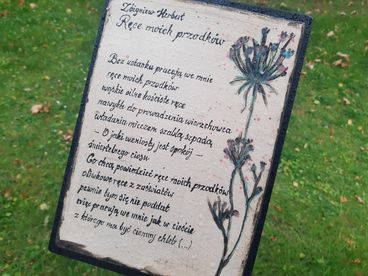 Zbigniew Herbert
Ręce moich przodków
Bez ustanku pracują we mnie
ręce moich przodków
wąskie silne kościste ręce
nawykłe do prowadzenia wierzchowca
władania mieczem szablą szpadą
- O jaki wzniosły jest spokój -
śmiertelnego ciosu
Co chcą powiedzieć ręce moich przodków
oliwkowe ręce z zaświatów
pewnie bym się nie poddał
więc pracują we mnie jak w cieście
z którego ma być ciemny chleb (...)